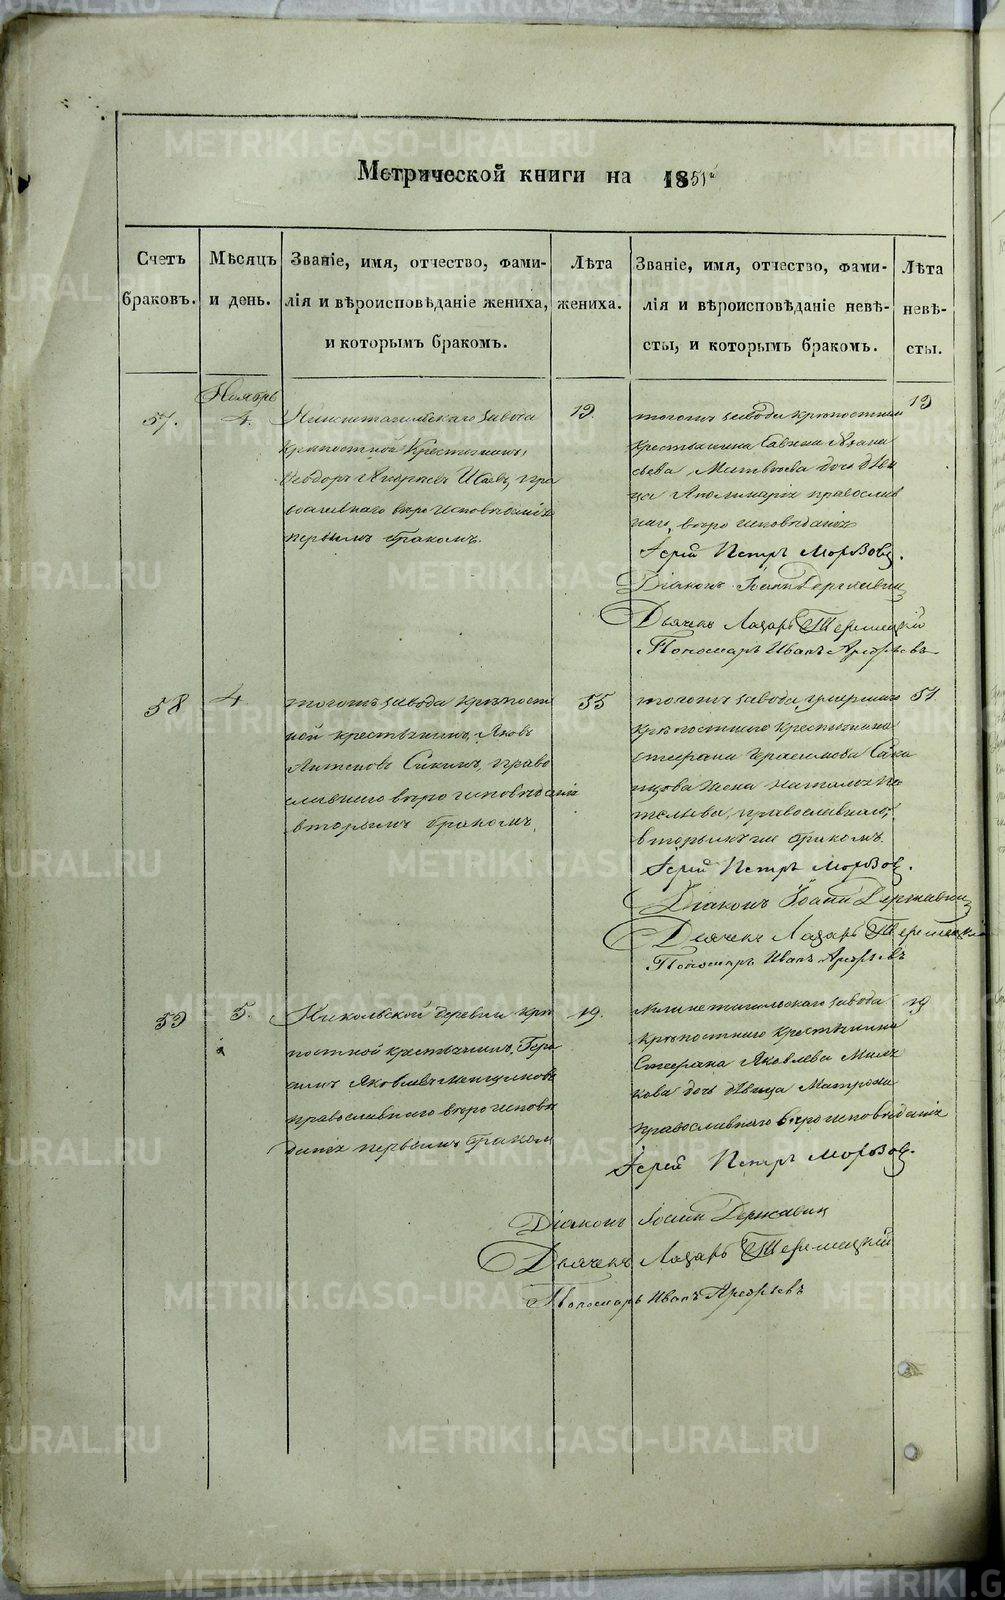 Метрической книги на 1851й
Счетъ браковъ.
Мѣсяцъ и день.
Званіе, имя, отчество, фами-
лія и вѣроисповѣданіе жениха,
и которымъ бракомъ.
Лѣта жениха.
Званіе, имя, отчество, фами-
лія и вѣроисповѣданіе невѣ-
сты, и которымъ бракомъ.
Лѣта невѣ-
сты.
Ноябрь
57.
4.
Нижнетагильскаго завода
крѣпостной крестьянинъ
Ѳеодоръ
пра
вославнаго вѣроисповѣданія
первымъ бракомъ.
19
тогожъ завода крѣпостнаго
крестьянина Савина
Матвѣева дочь дѣви
ца Аполинарія православ
наго вѣроисповѣданія
19
Іерей Петръ Морозовъ.
Діаконъ Іоаннъ Державинъ
Дьячекъ Лазарь
Пономарь Иванъ
58
4
тогожъ завода крѣпост
ной крестьянинъ Яковъ
Антоновъ право
славнаго вѣроисповѣданія
вторымъ бракомъ
55
тогожъ завода умершаго
крѣпостнаго крестьянина
Стефана Герасимова
жена Наталья
православная,
вторымъ же бракомъ.
51
Іерей Петръ Морозовъ.
Діаконъ Іоаннъ Державинъ
Дьячекъ Лазарь
Пономарь Иванъ
59
5.
Никольской деревни крѣ
постной крестьянинъ Гера
симъ Яковлевъ
православнаго вѣроисповѣ
данія первымъ бракомъ
19.
Нижнетагильскаго завода
крѣпостнаго крестьянина
Стефана Яковлева
дочь дѣвица Матрона
православнаго вѣроисповѣданія
19
Іерей Петръ Морозовъ.
Діаконъ Іоаннъ Державинъ
Дьячекъ Лазарь
Пономарь Иванъ
METRIKI.GASO-URAL.RU